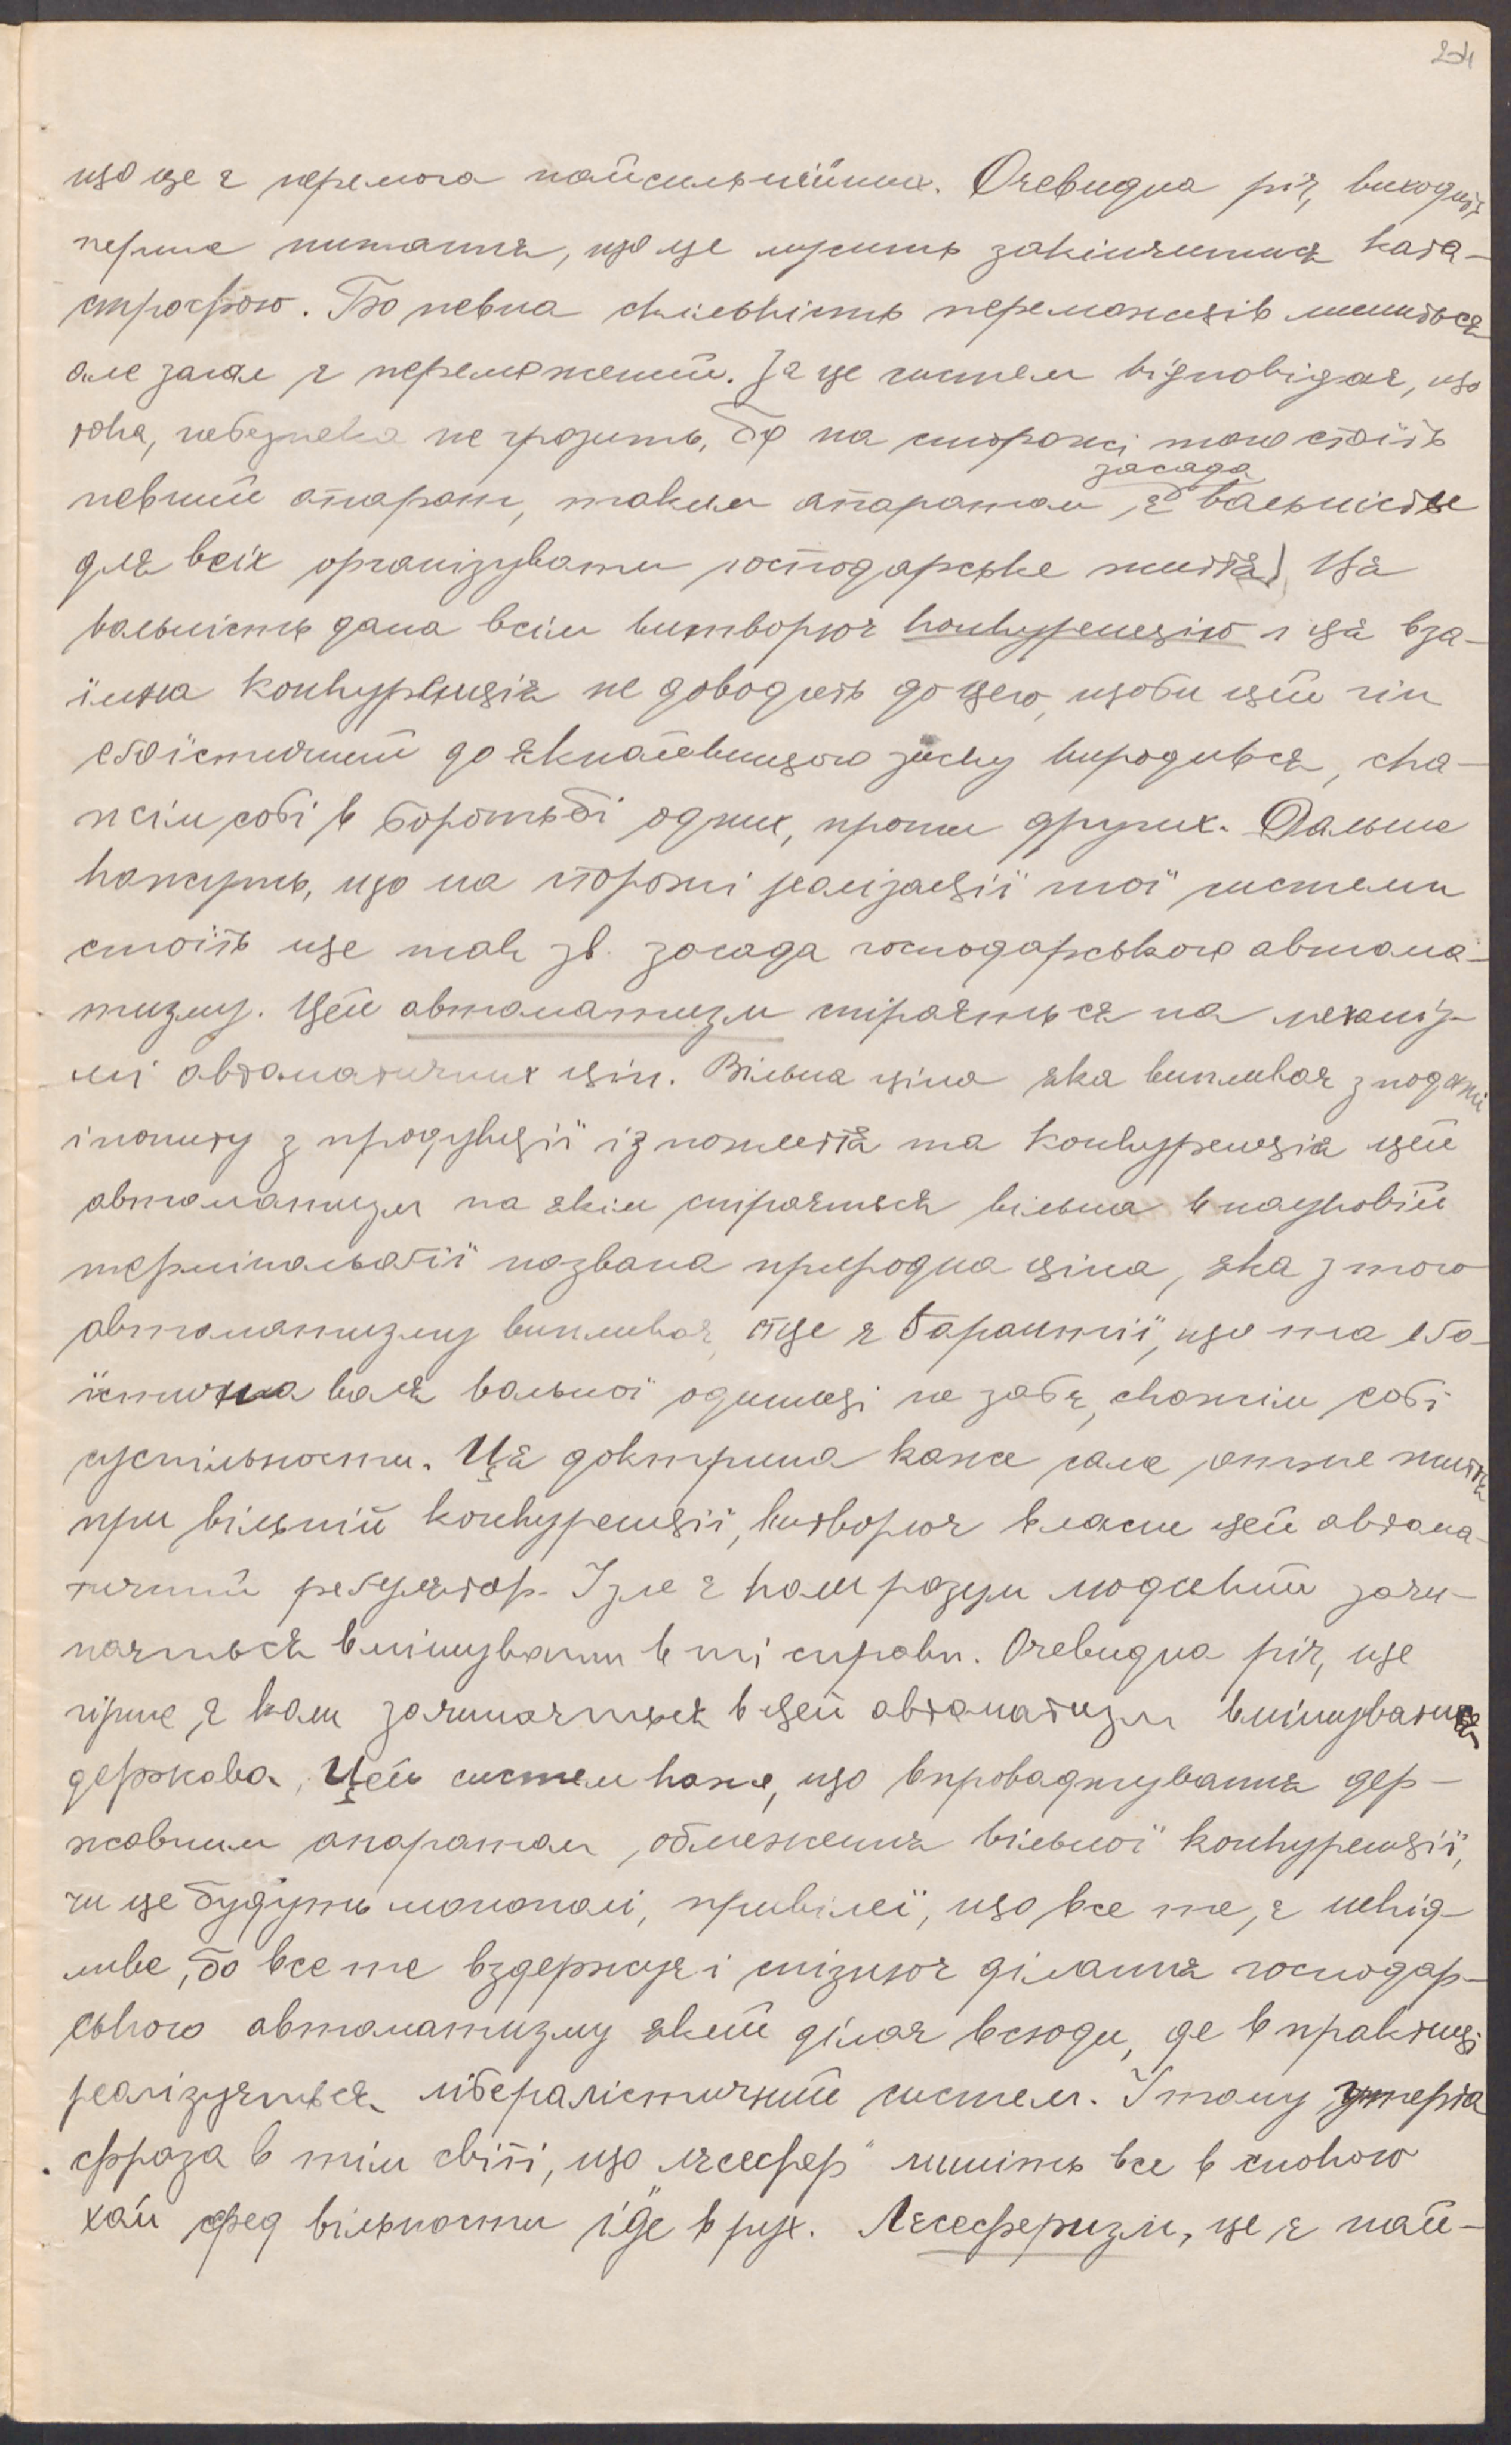 24
що це є перемога найсильнійших. Очевидна річ, виходить
перше питання, що це мусить закінчитися ката-
строфою. Бо певна скількість переможців лишиться
але загал є переможений. На це систем відповідає, що
така, небезпека не грозить, бо на сторожі того стоїть
засада
певний апарат, таким апаратом, є вольність
для всіх організувати господарське життя) Ця
вольність дана всім витворює конкуренцію і ця вза-
їмна конкуренція не доводить до цего, щоби цей гін
еґоїстичний до якнайвищого зиску виродився, ска-
жім собі в боротьбі одних, проти других. Дальше
кажуть, що на сторожі реалізації тої системи
стоїть ще так зв. засада господарського автома-
тизму. Цей автоматизм спирається на механіз-
мі автоматичних цін. Вільна ціна яка випливає з подажі
і попиту з продукції із пожиття та конкуренція цей
автоматизм на якім спирається вільна в науковій
термінольоґії названа природна ціна, яка з того
автоматизму випливає, отце є ґарантії, що та еґо-
їстична воля вольної одиниці не заб'є, скажім собі
суспільности. Ця доктрина каже саме, отже життя
при вільній конкуренції, витворює власне цей автома-
тичний реґулятор. Зле є коли розум людський зачи-
нається вмішувати в ті справи. Очевидна річ, ще
гірше, є коли зачинається в цей автоматизм вмішуватися
держава. Цей систем каже, що впроваджування дер-
жавним апаратом, обмеження вільної конкуренції,
чи це будуть монополі, привілеї, що все те, є шкід-
ливе, бо все те вздержує і спізнює ділання господар-
ського автоматизму який ділає всюди, де в практиці
реалізується лібералістичний систем. І тому утерта
фраза в тім світі, що лєсефер" лишіть все в спокою
хай фед вільности іде в рух. Лєсеферизм, це є най-